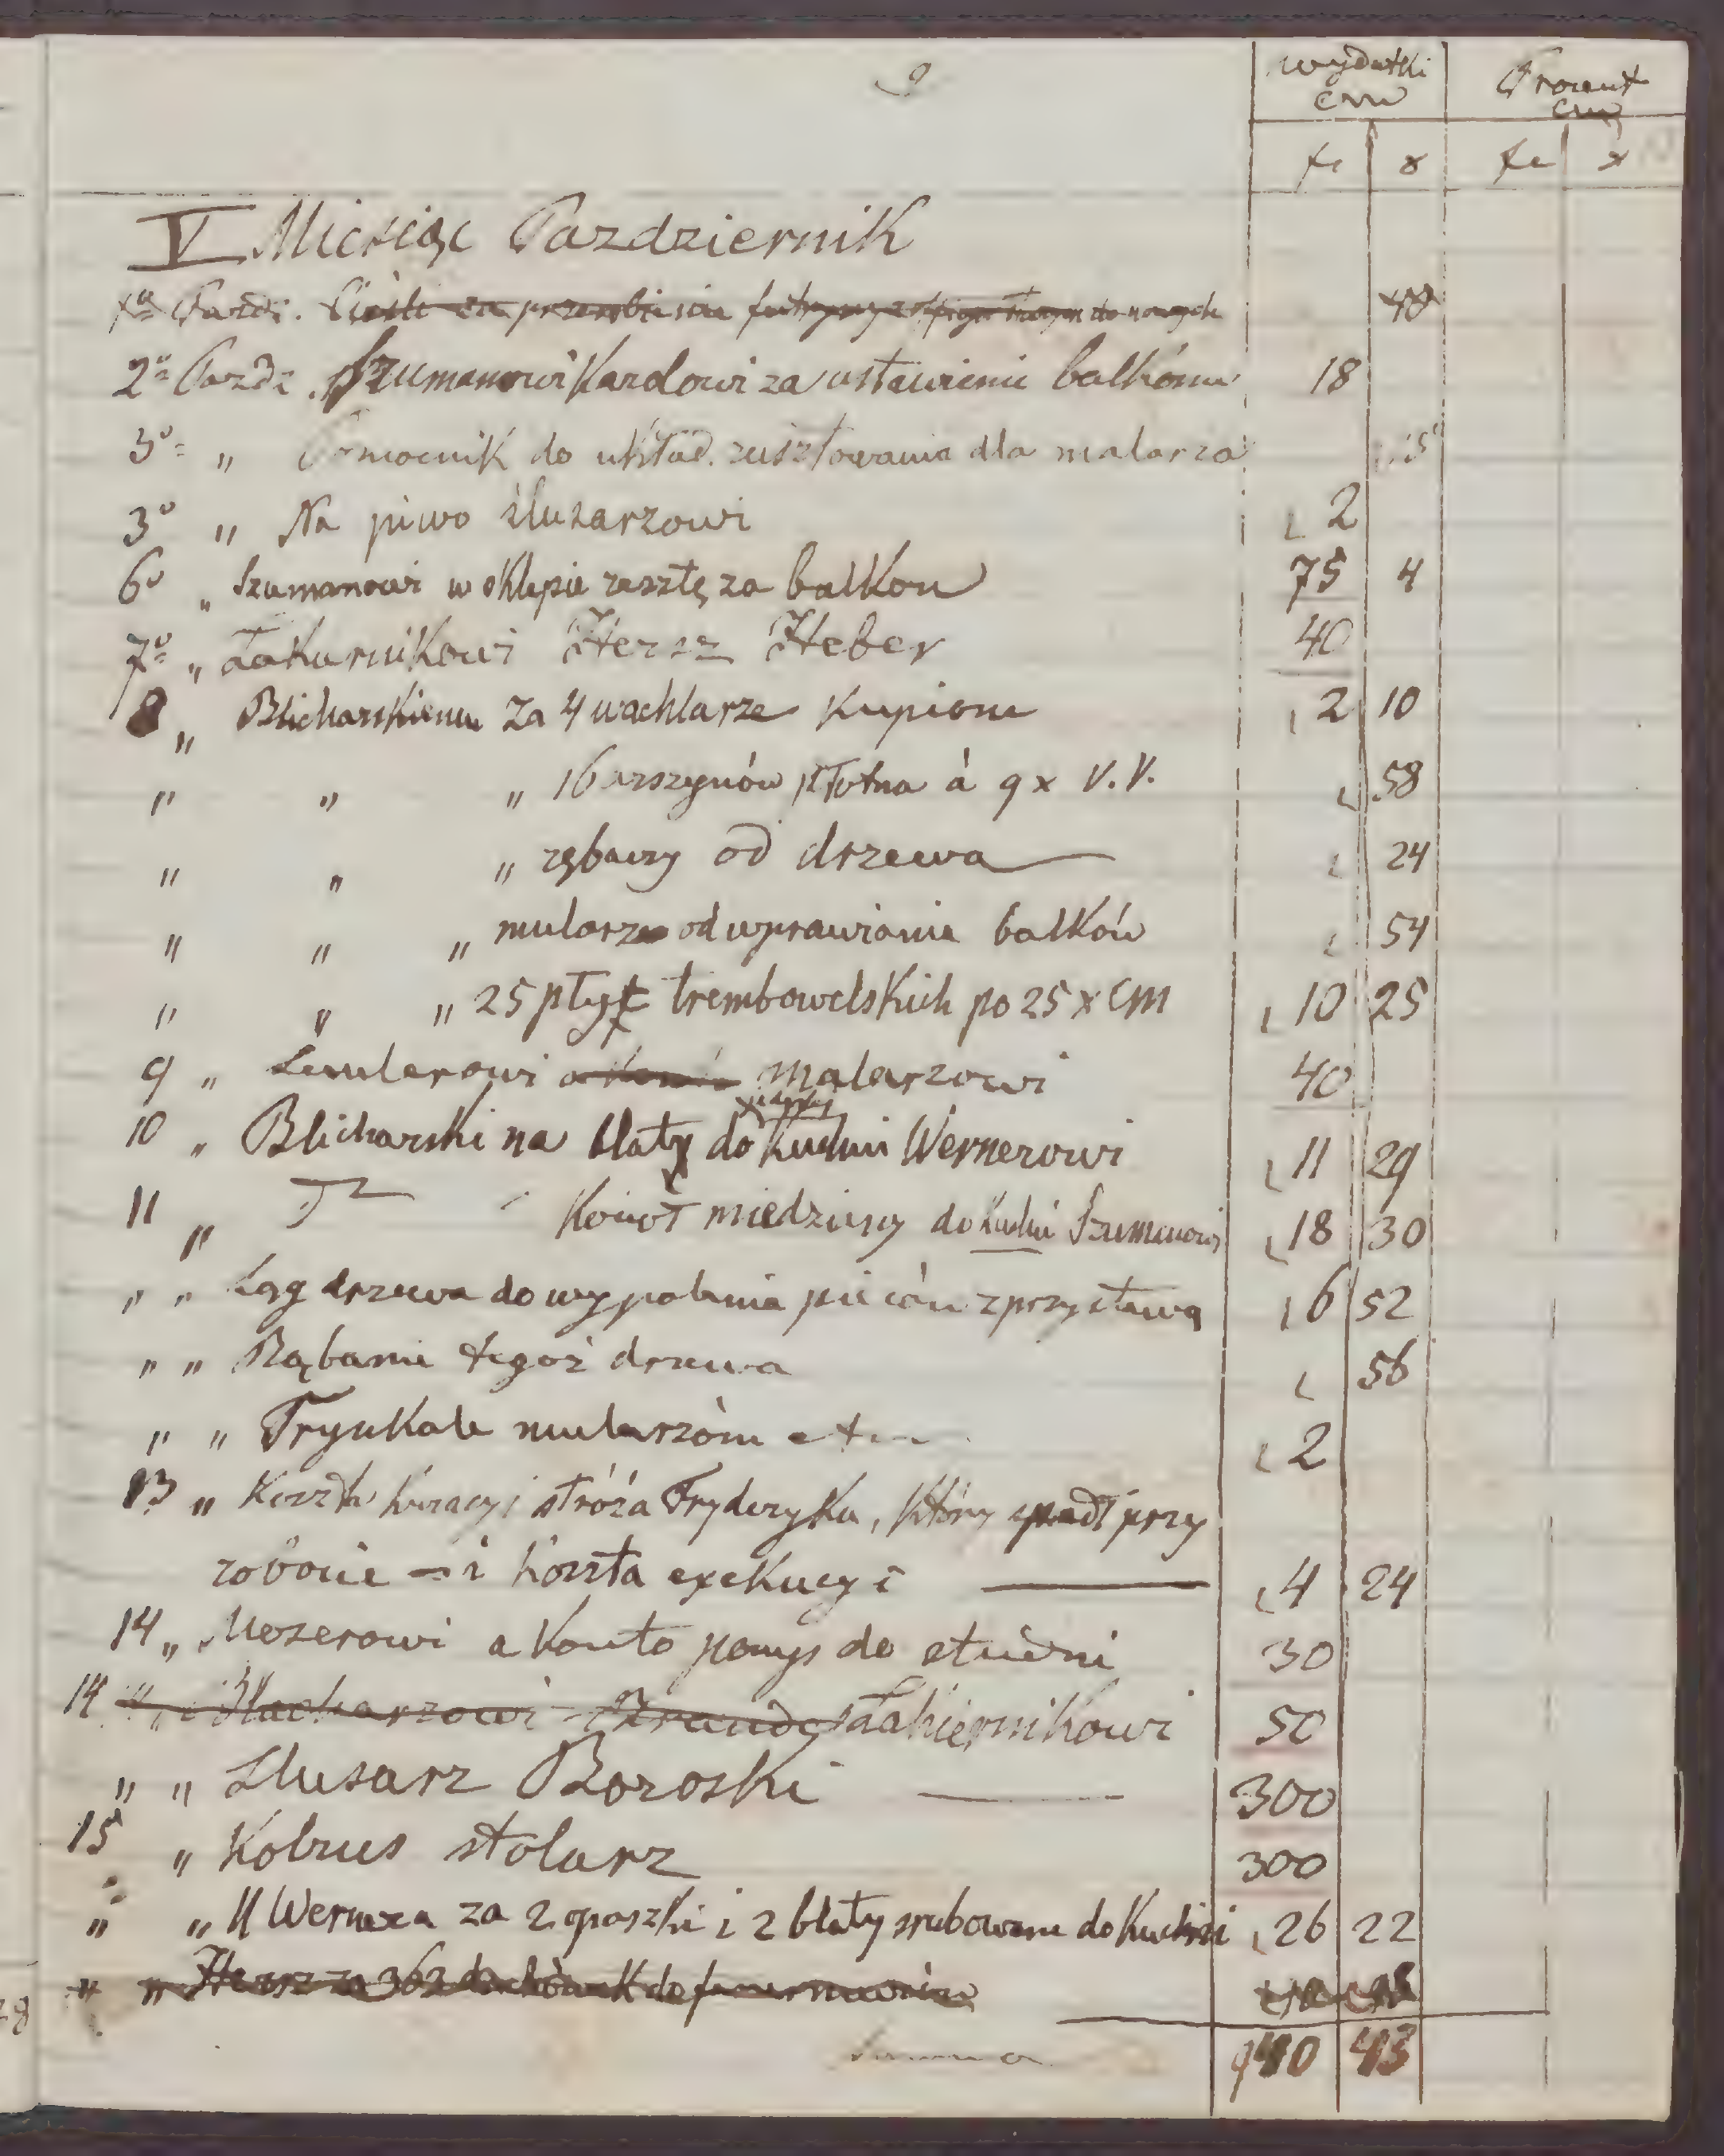 9
wydatki Procent
cm cm
fr x fr x
V Miesiąc Pazdziernik
1º Pazdz. Cieśli za przerobienie futryny do nowych 40
2º Pazdz. Szumanowi Karolowi za ustawienie balkónu 18
3º " Pomocnik do układ. rusztowania dla malarza 15
3º " Na piwo ślusarzowi 2
6º " Szumanowi w sklepie resztę za balkon 75 4
7º " Łakurnikowi Hersz Heber 40
8 " Blicharskiemu za 4 wachlarze kupione 2 10
" " " 16 arszynów płotna à 9 x V.V. 58
" " " rębaczy od drzewa 24
" " " mularze od wprawiania balków 54
" " " 25 płyt trembowelskich po 25 x CM 10 25
9 " malarzowi 40
10 " Blicharski na blaty do kuchni Wernerowi 11 29
11 " Kocioł miedziany do kuchni Szumanowi 18 30
" " Łąg drzewa do wypalenia pieców z przystawą 6 52
" " Rąbanie tegoż drzewa 56
" " Trynkale mularzóm 2
13 " Koszta kuracyi stróża Fryderyka, który spadł przy
robocie – i koszta exekucyi 4 24
14 " Mozerowi a konto pomp do studni 30
14 " Blacharzowi Łakiernikowi 50
" " Slusarz Boroski 300
15 " Kobzus stolarz 300
" " U Wernera za 2 opaszki i 2 blaty srubowane do kuchni 26 22
" " Hersz za 362 dachówek do
Summa 940 43